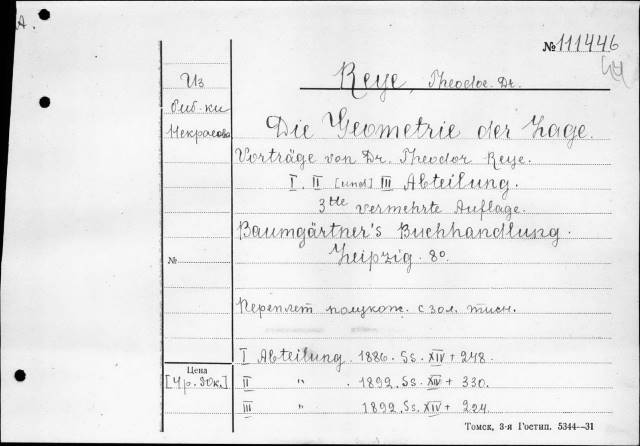 А.
№111446
Из
Reye, Theodor. Dr.
биб-ки
Некрасова
Die Geometrie der Lage.
Vorträge von Dr. Theodor Reye.
I. II [und] III Abteilung.
3tte vermehrte Auflage.
Baumgärtner's Buchhandlung.
№
Leipzig. 8o.
Переплет полукож. с зол. тисн.
I Abteilung. 1886. Ss. XIV + 248.
Цена
[4р.30к.]
II " . 1892. Ss. XIV + 330.
III " 1892. Ss. XIV + 224.
Томск, 3-я Гостип. 5344—31